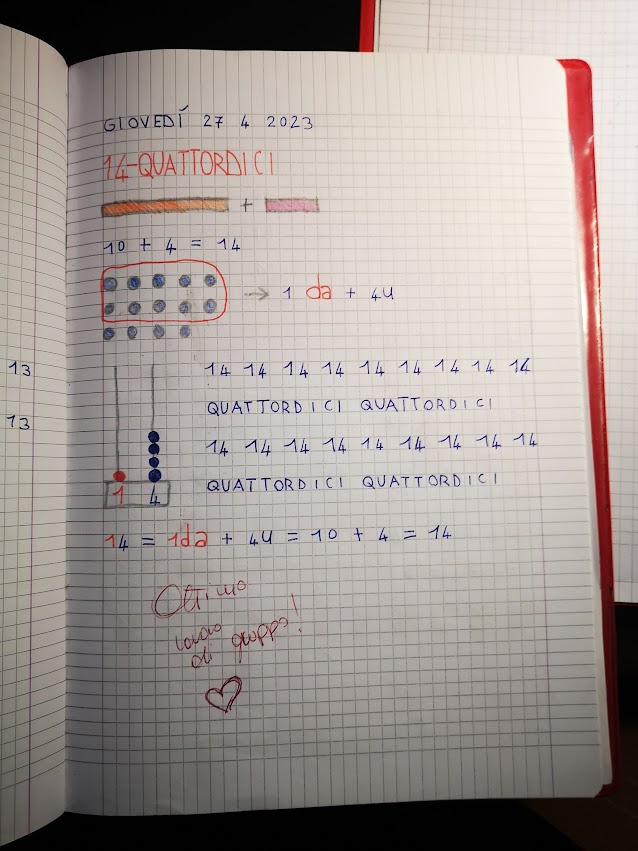 13
13
GIOVEDÍ 27 4 2023
14-QUATTORDICI
+
10 + 4 = 14
→ 1 da + 4U
14 14 14 14 14 14 14 14 14
QUATTORDICI QUATTORDICI
14 14 14 14 14 14 14 14 14
1 4
QUATTORDICI QUATTORDICI
14 = 1da + 4U = 10 + 4 = 14
Ottimo
lavoro
di gruppo!